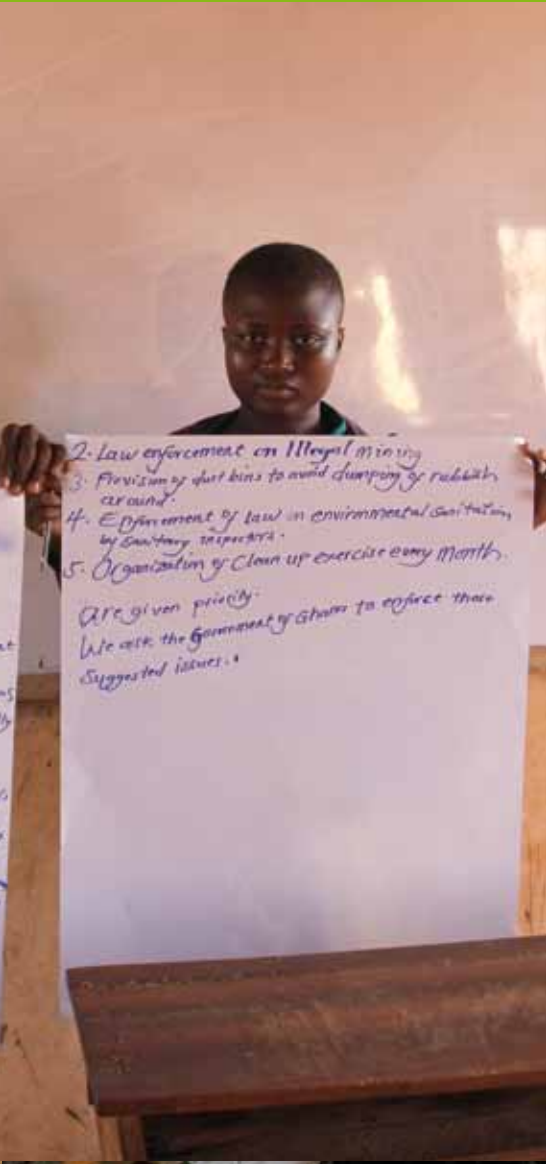 2. Law enforcement on Illegal mining
3. Provision of dust bins to avoid dumping of rubbish
around.
4. Enforcement of law in environmental sanitation,
by sanitary inspectors.
5. Organization of Clean up exercise every month.
are given priority.
We ask the Government of Ghana to enforce these
Suggested issues.